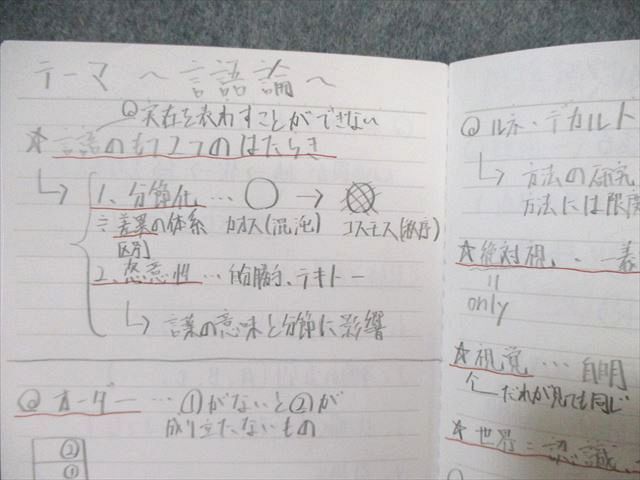 テーマ 〜言語論〜
Q 実在を表わすことができない
☆言語のもつ2つのはたらき
↳ 1. 分節化 … ○ → 
差異の体系 カオス(混沌) コスモス(秩序)
区別
2. 恣意性 … 自分勝手、テキトー
↳ 言葉の意味と分節に影響
Q オーダー … ①がないと②が
成り立たないもの
②
①
Q ルネ・デカルト
↳ 方法の研究
方法には限度
☆絶対視、・・一義
||
only
☆視覚 … 自明
↑ だれが見ても同じ
☆世界 = 認識